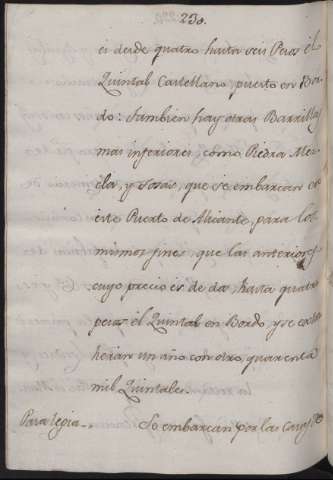 230.
es desde quatro hasta seis Pesos el
Quintal Castellano, puesto en Bor-
do: Tambien hay otras Barrillas
mas inferiores, como Piedra Mez-
cla, y Sosas, que se embarcan en
este Puerto de Alicante, para los
mismos fines que las anteriores,
cuyo precio es de dos, hasta quatro
pesos el Quintal en Bordo, y se
un año con otro, quarenta
mil Quintales.
Para Legia.. Se embarcan por las Casas de